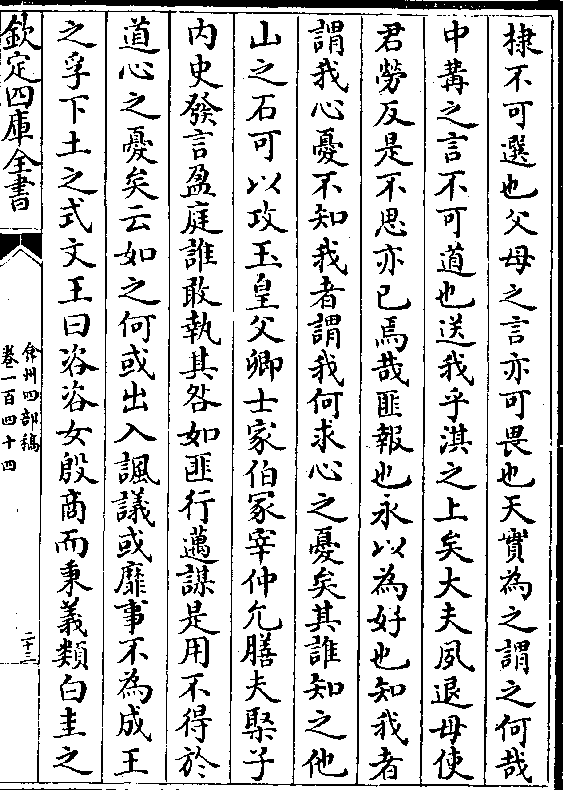 棣不可選也父母之言亦可畏也天實為之謂之何哉
中冓之言不可道也送我乎淇之上矣大夫夙退毋使
君勞反是不思亦已焉哉匪報也永以為好也知我者
謂我心憂不知我者謂我何求心之憂矣其誰知之他
山之石可以攻玉皇父卿士家伯冢宰仲允膳夫棸子
内史發言盈庭誰敢執其咎如匪行邁謀是用不得於
道心之憂矣云如之何或出入諷議或靡事不為成王
之孚下土之式文王曰咨咨女殷商而秉義類白圭之
欽定四庫全書
弇州四部稿
卷一百四十四
二十三